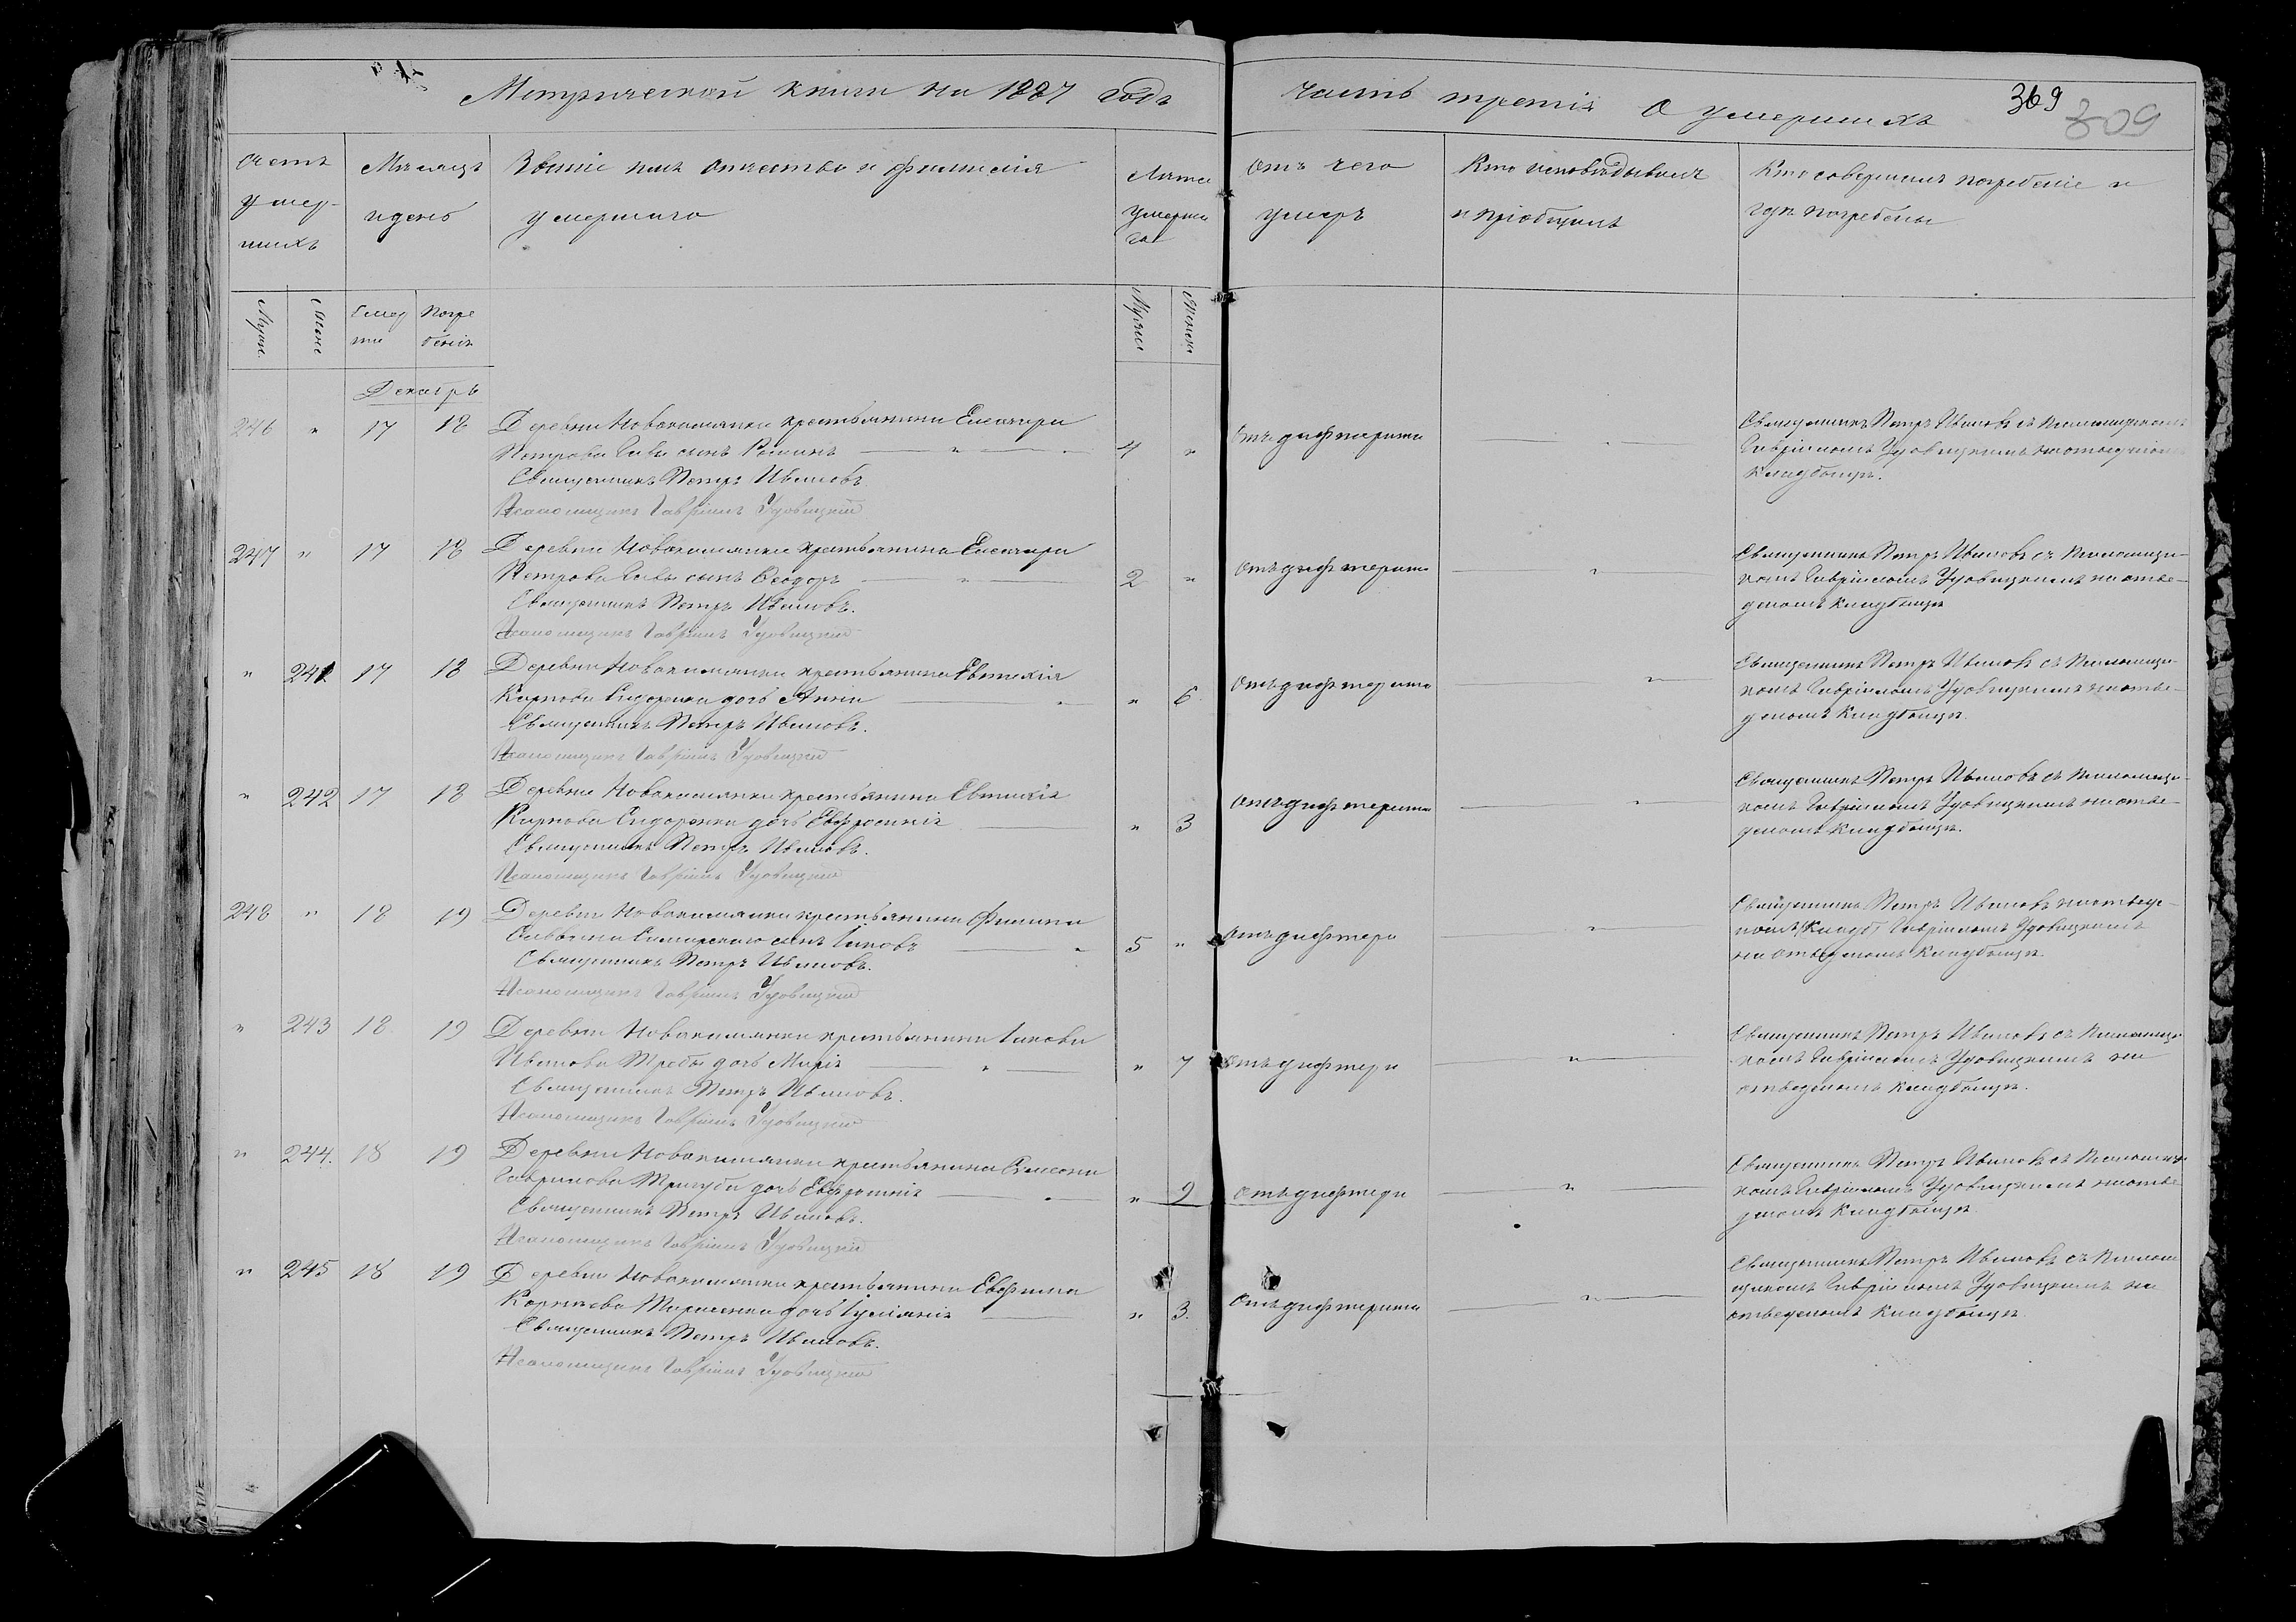 Метрической книги на 1887 годъ
часть третія О умершихъ
369
309
Счетъ умер-шихъ
Мѣсяцъ и день
Званіе имя отчество и фамилія умершаго
Лѣта умершаго
Отъ чего умеръ
Кто исповѣдывалъ и пріобщалъ
Кто совершалъ погребеніе и гдѣ погребены
Мужс.
Женс
Смер ти
Погре бенія
Мужес
Женска
Декабрь
246 " 17 18 Деревни Новокаманки крестьянина Елеазара
Петрова сынъ 4 "
Отъ дифтерита
Священникъ Петръ Ивановъ
Псаломщикъ Гавріилъ Удовицкій
Священникъ Петръ Ивановъ съ Псаломщикомъ
Гавріиломъ Удовицкимъ на отведенномъ
кладбищѣ.
247 " 17 18 Деревни Новокаманки крестьянина Елеазара
Петрова сынъ Ѳеодоръ 2 "
Отъ дифтерита
Священникъ Петръ Ивановъ.
Псаломщикъ Гавріилъ Удовицкій
Священникъ Петръ Ивановъ съ Псаломщи-
комъ Гавріиломъ Удовицкимъ на отве-
деномъ кладбищѣ
" 241 17 18 Деревни Новокаманки крестьянина Евтихія
Карпова Сидоренка дочь Анна " 6.
Отъ дифтерита
Священникъ Петръ Ивановъ.
Псаломщикъ Гавріилъ Удовицкій
Священникъ Петръ Ивановъ съ Псаломщи-
комъ Гавріиломъ Удовицкимъ на отве-
деномъ кладбищѣ.
" 242 17 18 Деревни Новокаманки крестьянина Евтихія
Карпова Сидоренка дочь Евфросинія " 3
отъ дифтерита
Священникъ Петръ Ивановъ.
Псаломщикъ Гавріилъ Удовицкій
Священникъ Петръ Ивановъ съ Псаломщи-
комъ Гавріиломъ Удовицкимъ на отве-
деномъ кладбищѣ.
248 " 18 19 Деревни Новокаманки крестьянина Филипа
Саввина сынъ Іаковъ 5 "
Отъ дифтери
Священникъ Петръ Ивановъ.
Псаломщикъ Гавріилъ Удовицкій
Священникъ Петръ Ивановъ на отвед-
номъ кладб Гавріиломъ Удовицкимъ
на отведеномъ кладбищѣ.
" 243 18 19 Деревни Новокаманки крестьянина Іакова
Иванова дочь Марія " 7
Отъ дифтери
Священникъ Петръ Ивановъ.
Псаломщикъ Гавріилъ Удовицкій
Священникъ Петръ Ивановъ съ Псаломщи
комъ Гавріиломъ Удовицкимъ на
отведеномъ кладбищѣ.
" 244. 18 19 Деревни Новокаманки крестьянина Симеона
Гаврилова Тригуба дочь Евфросинія " 9
отъ дифтери
Священникъ Петръ Ивановъ.
Псаломщикъ Гавріилъ Удовицкій
Священникъ Петръ Ивановъ съ Псаломщи
комъ Гавріиломъ Удовицкимъ на отве
деномъ кладбищѣ.
" 245 18 19 Деревни Новокаманки крестьянина Евфима
Корнѣева дочь Іуліанія " 3.
Отъ дифтерита
Священникъ Петръ Ивановъ.
Псаломщикъ Гавріилъ Удовицкій
Священникъ Петръ Ивановъ съ Псалом
щикомъ Гавріиломъ Удовицкимъ на
отведеномъ кладбищѣ